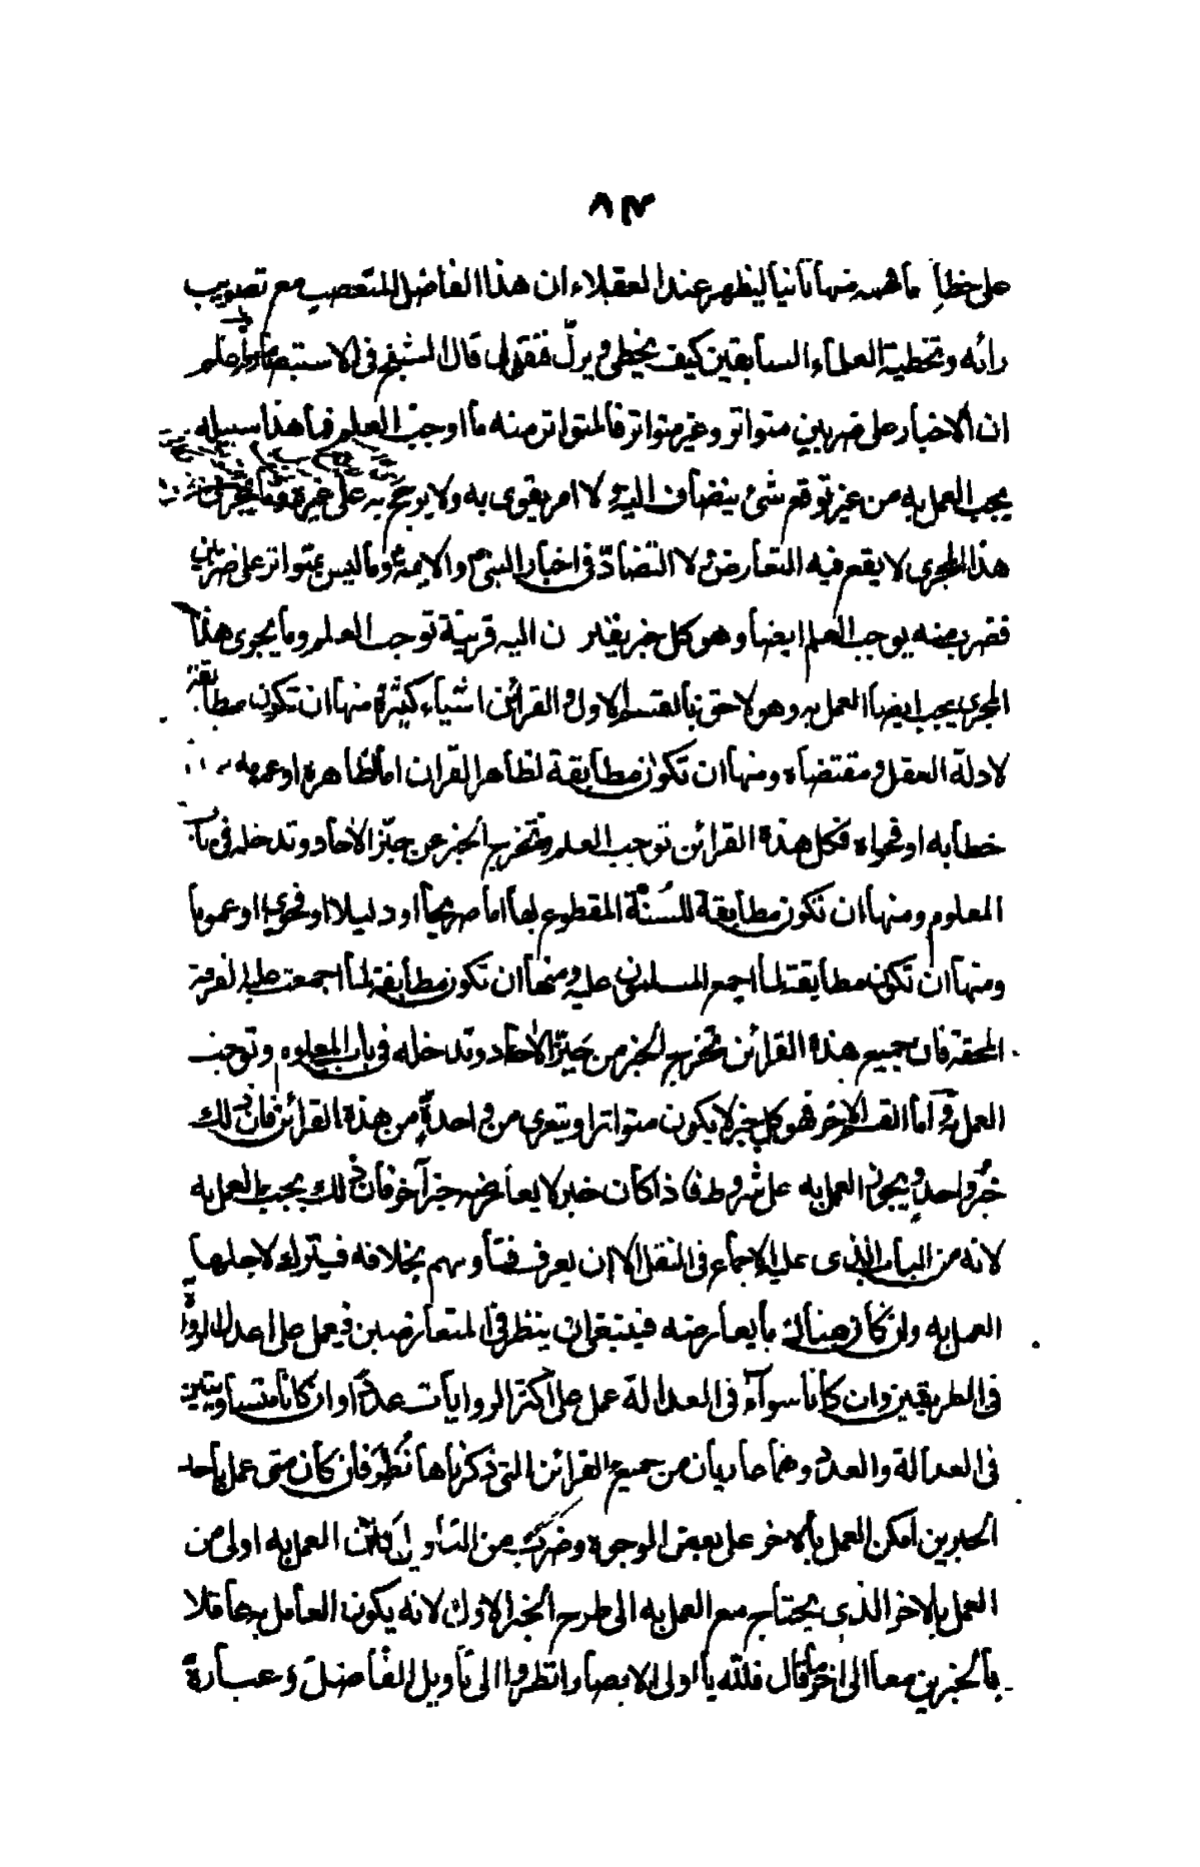 ٨٣
على خطأ ما فهمه منها ثانيا ليظهر عند العقلاء ان هذا الفاضل المتعصب مع تصويب
رائه وتخطية العلماء السابقين كيف يخطى ويزلّ فنقول قال الشيخ فى الاستبصار واعلم
ان الاخبار على ضربين متواتر وغير متواتر فالمتواتر منه ما اوجب العلم فما هذا سبيله
يجب العمل به من غير توقع شئ ينضاف اليه ولا امر يقوى به ولا يرجح به على غيره وما يجرى
هذا المجرى لا يقع فيه التعارض ولا التضادّ فى اخبار النبى والائمة وما ليس بمتواتر على ضربين
فضرب منه يوجب العلم ايضا وهو كل خبر يقترن اليه قرينة توجب العلم وما يجرى هذا
المجرى يجب ايضا العمل به وهو لاحق بالقسم الاول والقرائن اشياء كثيرة منها ان تكون مطابقة
لادلة العقل ومقتضاه ومنها ان تكون مطابقة لظاهر القرآن اما لظاهره او عمومه
خطابه او فحواه فكل هذه القرائن توجب العلم وتخرج الخبر عن حيّز الاحاد وتدخله فى باب
المعلوم ومنها ان تكون مطابقة للسُنّة المقطوع بها اما صريحا او دليلا او فحوى او عموما
ومنها ان تكون مطابقة لما اجمع المسلمون عليه ومنها ان تكون مطابقة لما اجمعت عليه الفرقة
المحقة فان جميع هذه القرائن تخرج الخبر من حيّز الاحاد وتدخله فى باب المعلوم وتوجب
العمل به واما القسم الاخر فهو كل خبر لا يكون متواترا ويتعرى من واحدة من هذه القرائن فان ذلك
خبر واحد ويجوز العمل به على شروط فاذا كان خبر لا يعارضه خبر آخر فان ذلك يجب العمل به
لانه من الباب الذى عليه الاجماع فى النقل الا ان يعرف فتاويهم بخلافه فيترك لاجلها
العمل به وان كان هناك ما يعارضه فينبغى ان ينظر فى المتعارضين فيعمل على اعدل الرواة
فى الطريقين وان كانا سوآء فى العدالة عمل على اكثر الروايات عددا وان كانا متساويين
فى العدالة والعدد وهما عاريان من جميع القرائن التى ذكرناها نُظِر فان كان متى عمل باحد
الخبرين امكن العمل بالاخر على بعض الوجوه وضرب من التأويل كان العمل به اولى من
العمل بالاخر الذى يحتاج مع العمل به الى طرح الخبر الاول لانه يكون العامل به عاملا
بالخبرين معا الى اخر ما قال فلله يا اولى الابصار انظروا الى تأويل الفاضل وعبارة